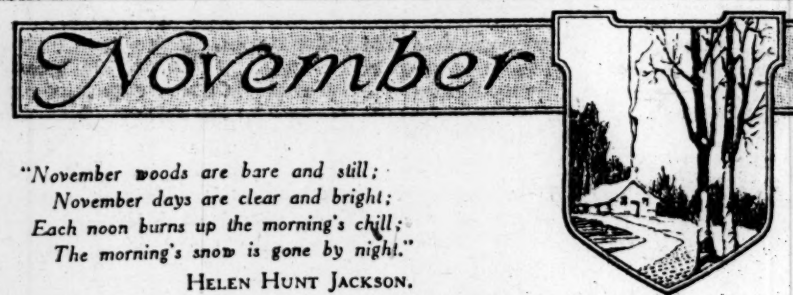 November
"November woods are bare and still;
November days are clear and bright;
Each noon burns up the morning's chill;
The morning's snow is gone by night."
HELEN HUNT JACKSON.